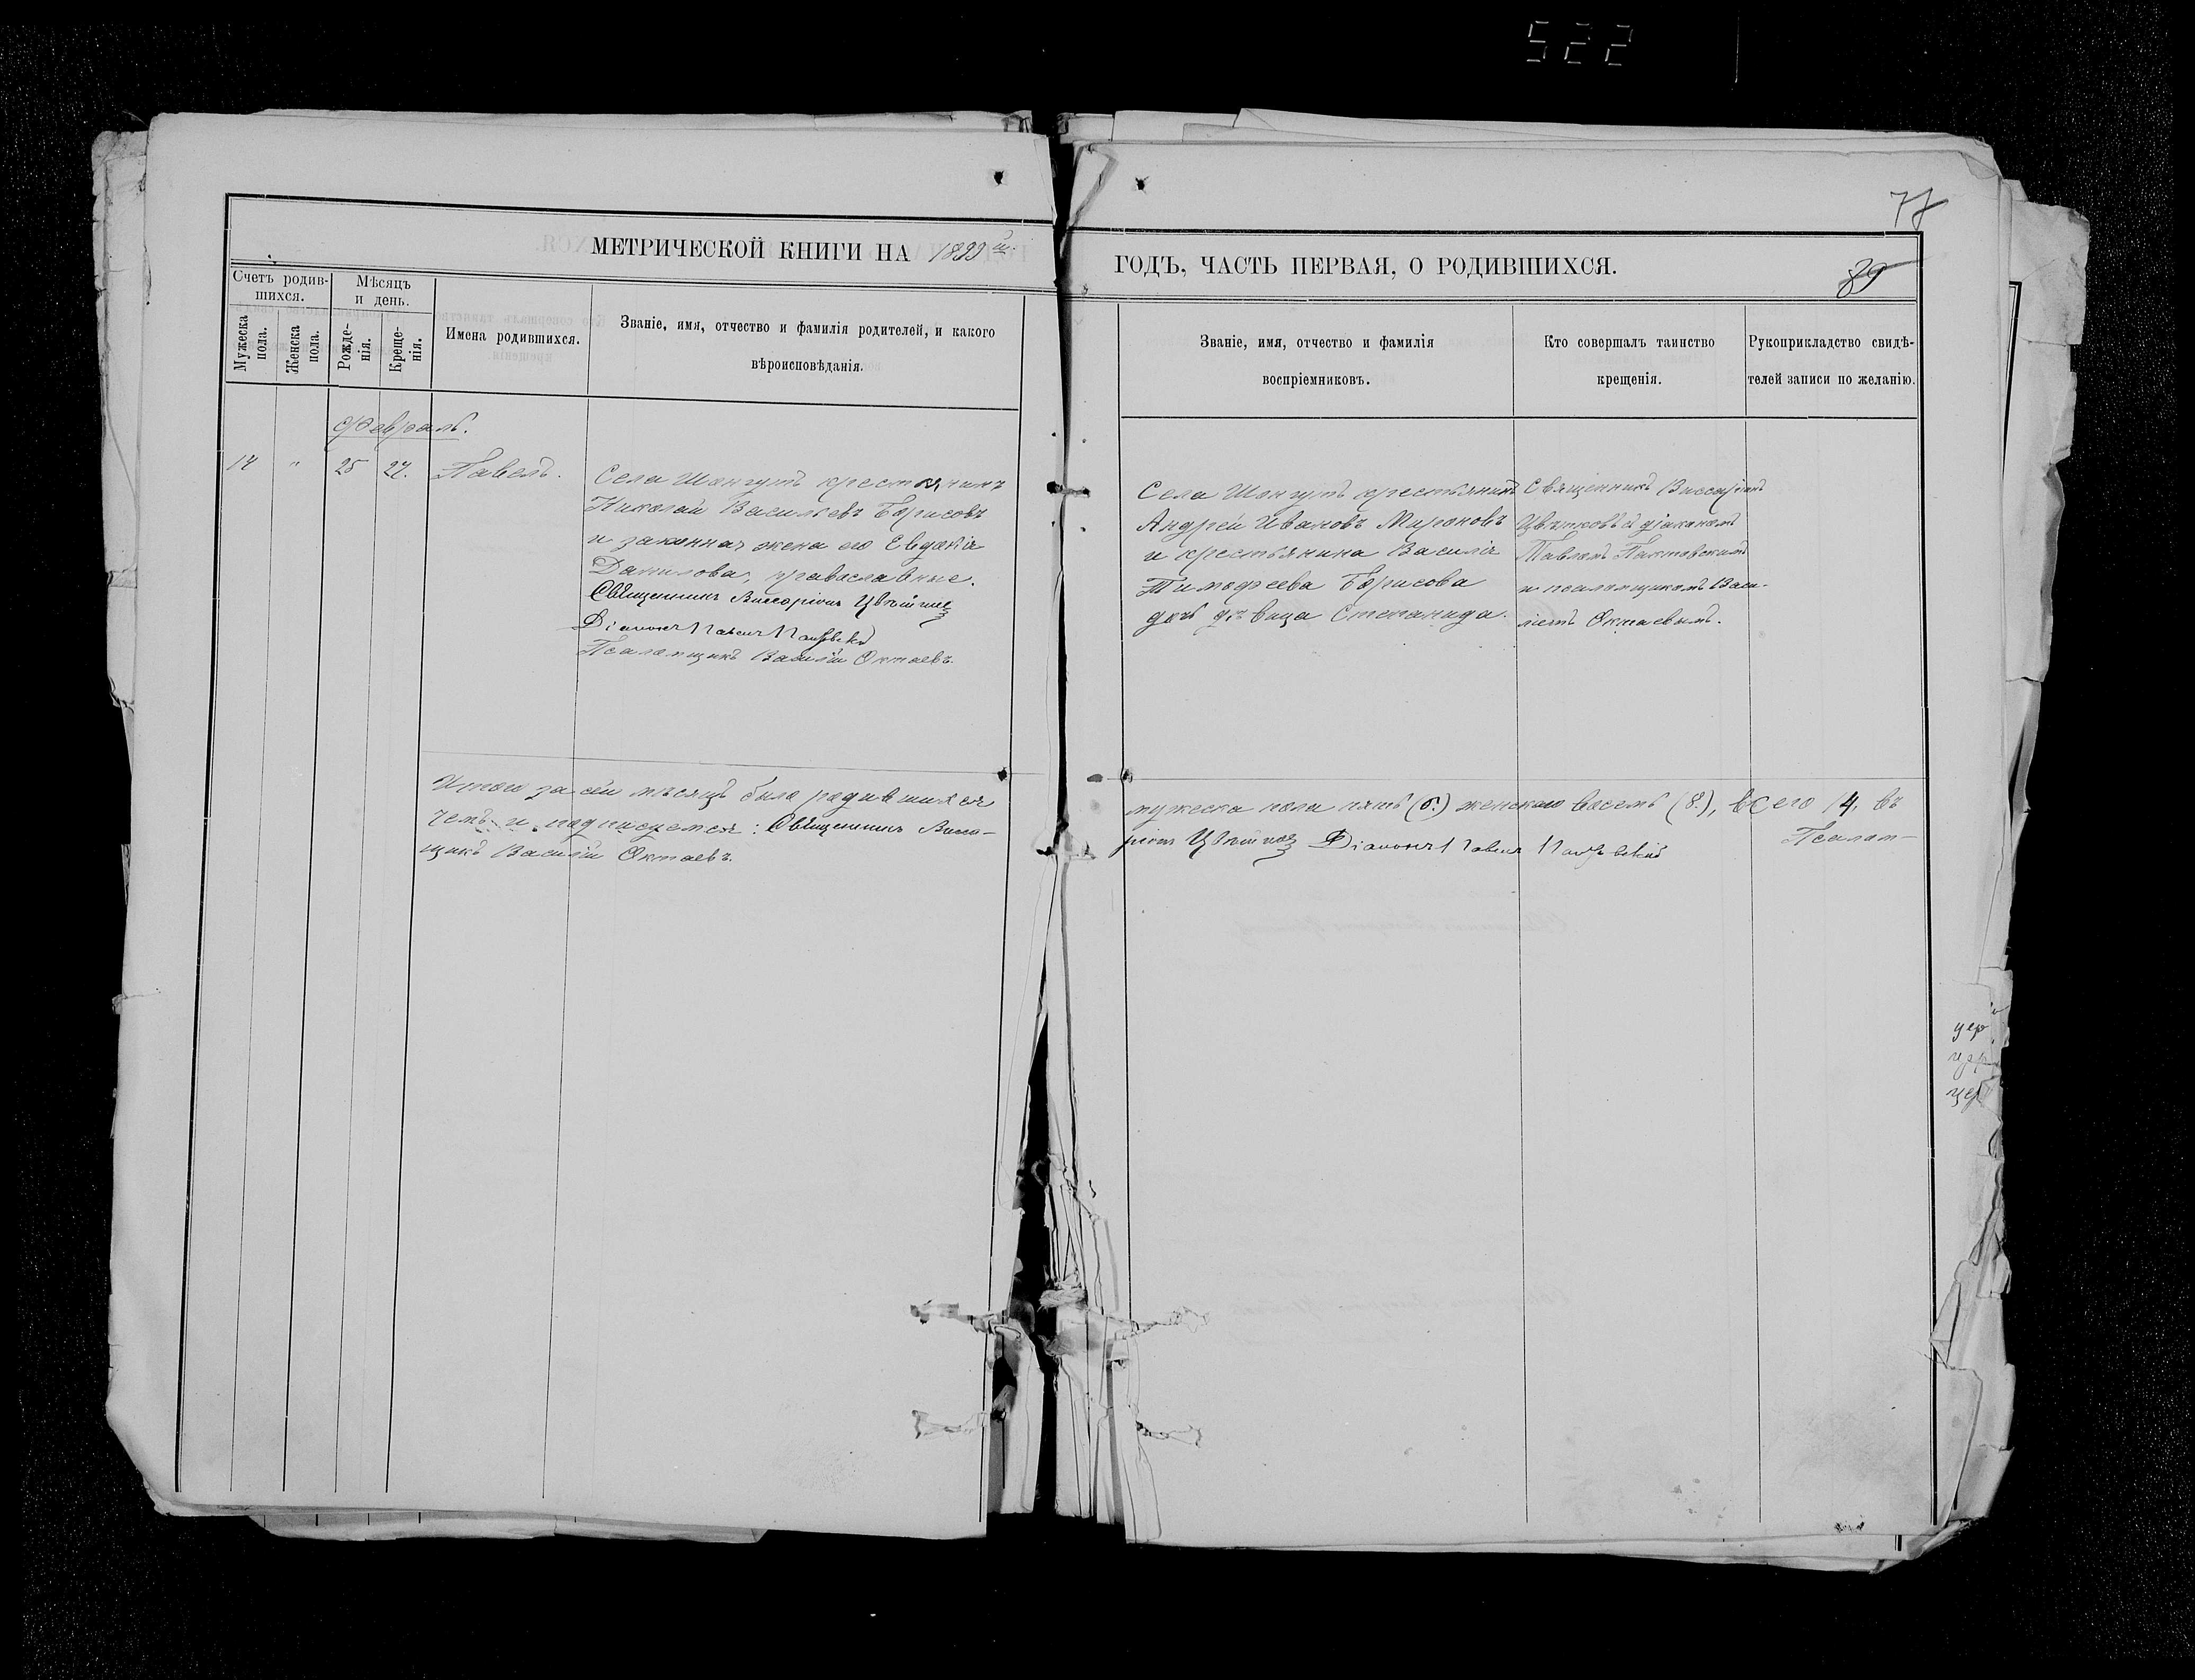 522
77
МЕТРИЧЕСКОЙ КНИГИ НА 1899й.
ГОДЪ, ЧАСТЬ ПЕРВАЯ, О РОДИВШИХСЯ.
89
Счетъ родив-
шихся.
Мѣсяцъ
и день.
Мужеска
пола.
Женска
пола.
Рожде-
нія.
Креще-
нія.
Имена родившихся.
Званіе, имя, отчество и фамилія родителей, и какого
вѣроисповѣданія.
Званіе, имя, отчество и фамилія
воспріемниковъ.
Кто совершалъ таинство
крещенія.
Рукоприкладство свидѣ-
телей записи по желанію.
Февраль.
14 " 25 27. Павелъ.
Села Шонгутъ крестьянинъ
Николай Васильевъ Борисовъ
и законная жена его Евдокія
Данилова, православные.
Священникъ Виссаріонъ Цвѣтковъ
Діаконъ Павелъ
Псаломщикъ Василій Октаевъ.
Села Шонгутъ крестьянинъ
Андрей Ивановъ Мироновъ
и крестьянина Василія
Тимофеева Борисова
дочь дѣвица Степанида.
Священникъ Виссаріонъ
Цвѣтковъ съ діакономъ
Павломъ
и псаломщикомъ Васи-
ліемъ Октаевымъ.
Итого за сей мѣсяцъ было родившихся
чемъ и подписуемся: Священникъ Висса-
щикъ Василій Октаевъ.
мужеска пола пять (6.) женскаго восемь (8.), всего 14, въ
ріонъ Цвѣтковъ Діаконъ Павелъ
Псалом-
цер
цер
цер